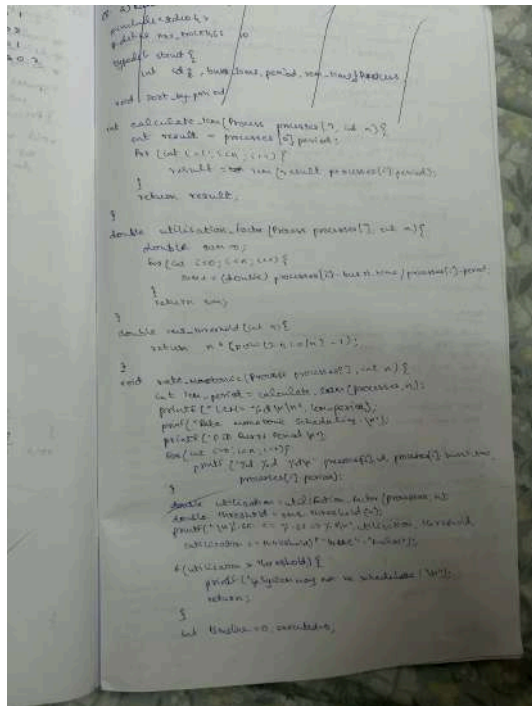 #include <stdio.h>
#define max_process 10
typedef struct {
int id, burst_time, period, rem_time; } Process
void sort_by_period
int calculate_lcm(Process processes[], int n){
int result = processes[0].period;
for (int i=1; i<n; i++) {
result = lcm(result, processes[i].period);
}
return result;
}
double utilisation_factor (Process processes[], int n){
double sum=0;
for(int i=0; i<n; i++) {
sum += (double) processes[i].burst_time / processes[i].period;
}
return sum;
}
double rms_threshold(int n){
return n * (pow(2, 1.0/n) - 1);
}
void rate_monotonic (Process processes[], int n) {
int lcm_period = calculate_lcm(processes, n);
printf("LCM= %d \n\n", lcm_period);
printf("Rate monotonic scheduling \n");
printf("PID Burst Period \n");
for(int i=0; i<n; i++){
printf("%d %d %d\n" processes[i].id, processes[i].burst_time,
processes[i].period);
}
double utilisation = utilisation_factor (processes, n);
double threshold = rms_threshold(n);
utilisation, threshold,
if (utilisation > threshold) {
printf("\n System may not be schedulable! \n");
return;
}
int timeline = 0, executed=0;